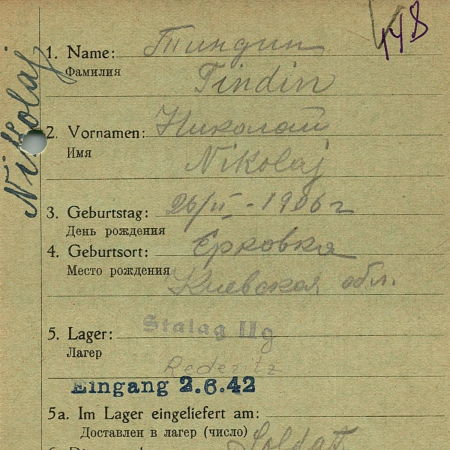 148
Nikolaj
1. Name: Тиндин
Фамилия
Tindin
2. Vornamen: Николай
Имя
Nikolaj
3. Geburtstag: 26/II - 1906 г
День рождения
4. Geburtsort: Ерковка
Место рождения
Киевская обл.
5. Lager: Stalag IIg
Лагер
Rederitz
Eingang 2.6.42
5a. Im Lager eingeliefert am:
Доставлен в лагер (число)
Soldat